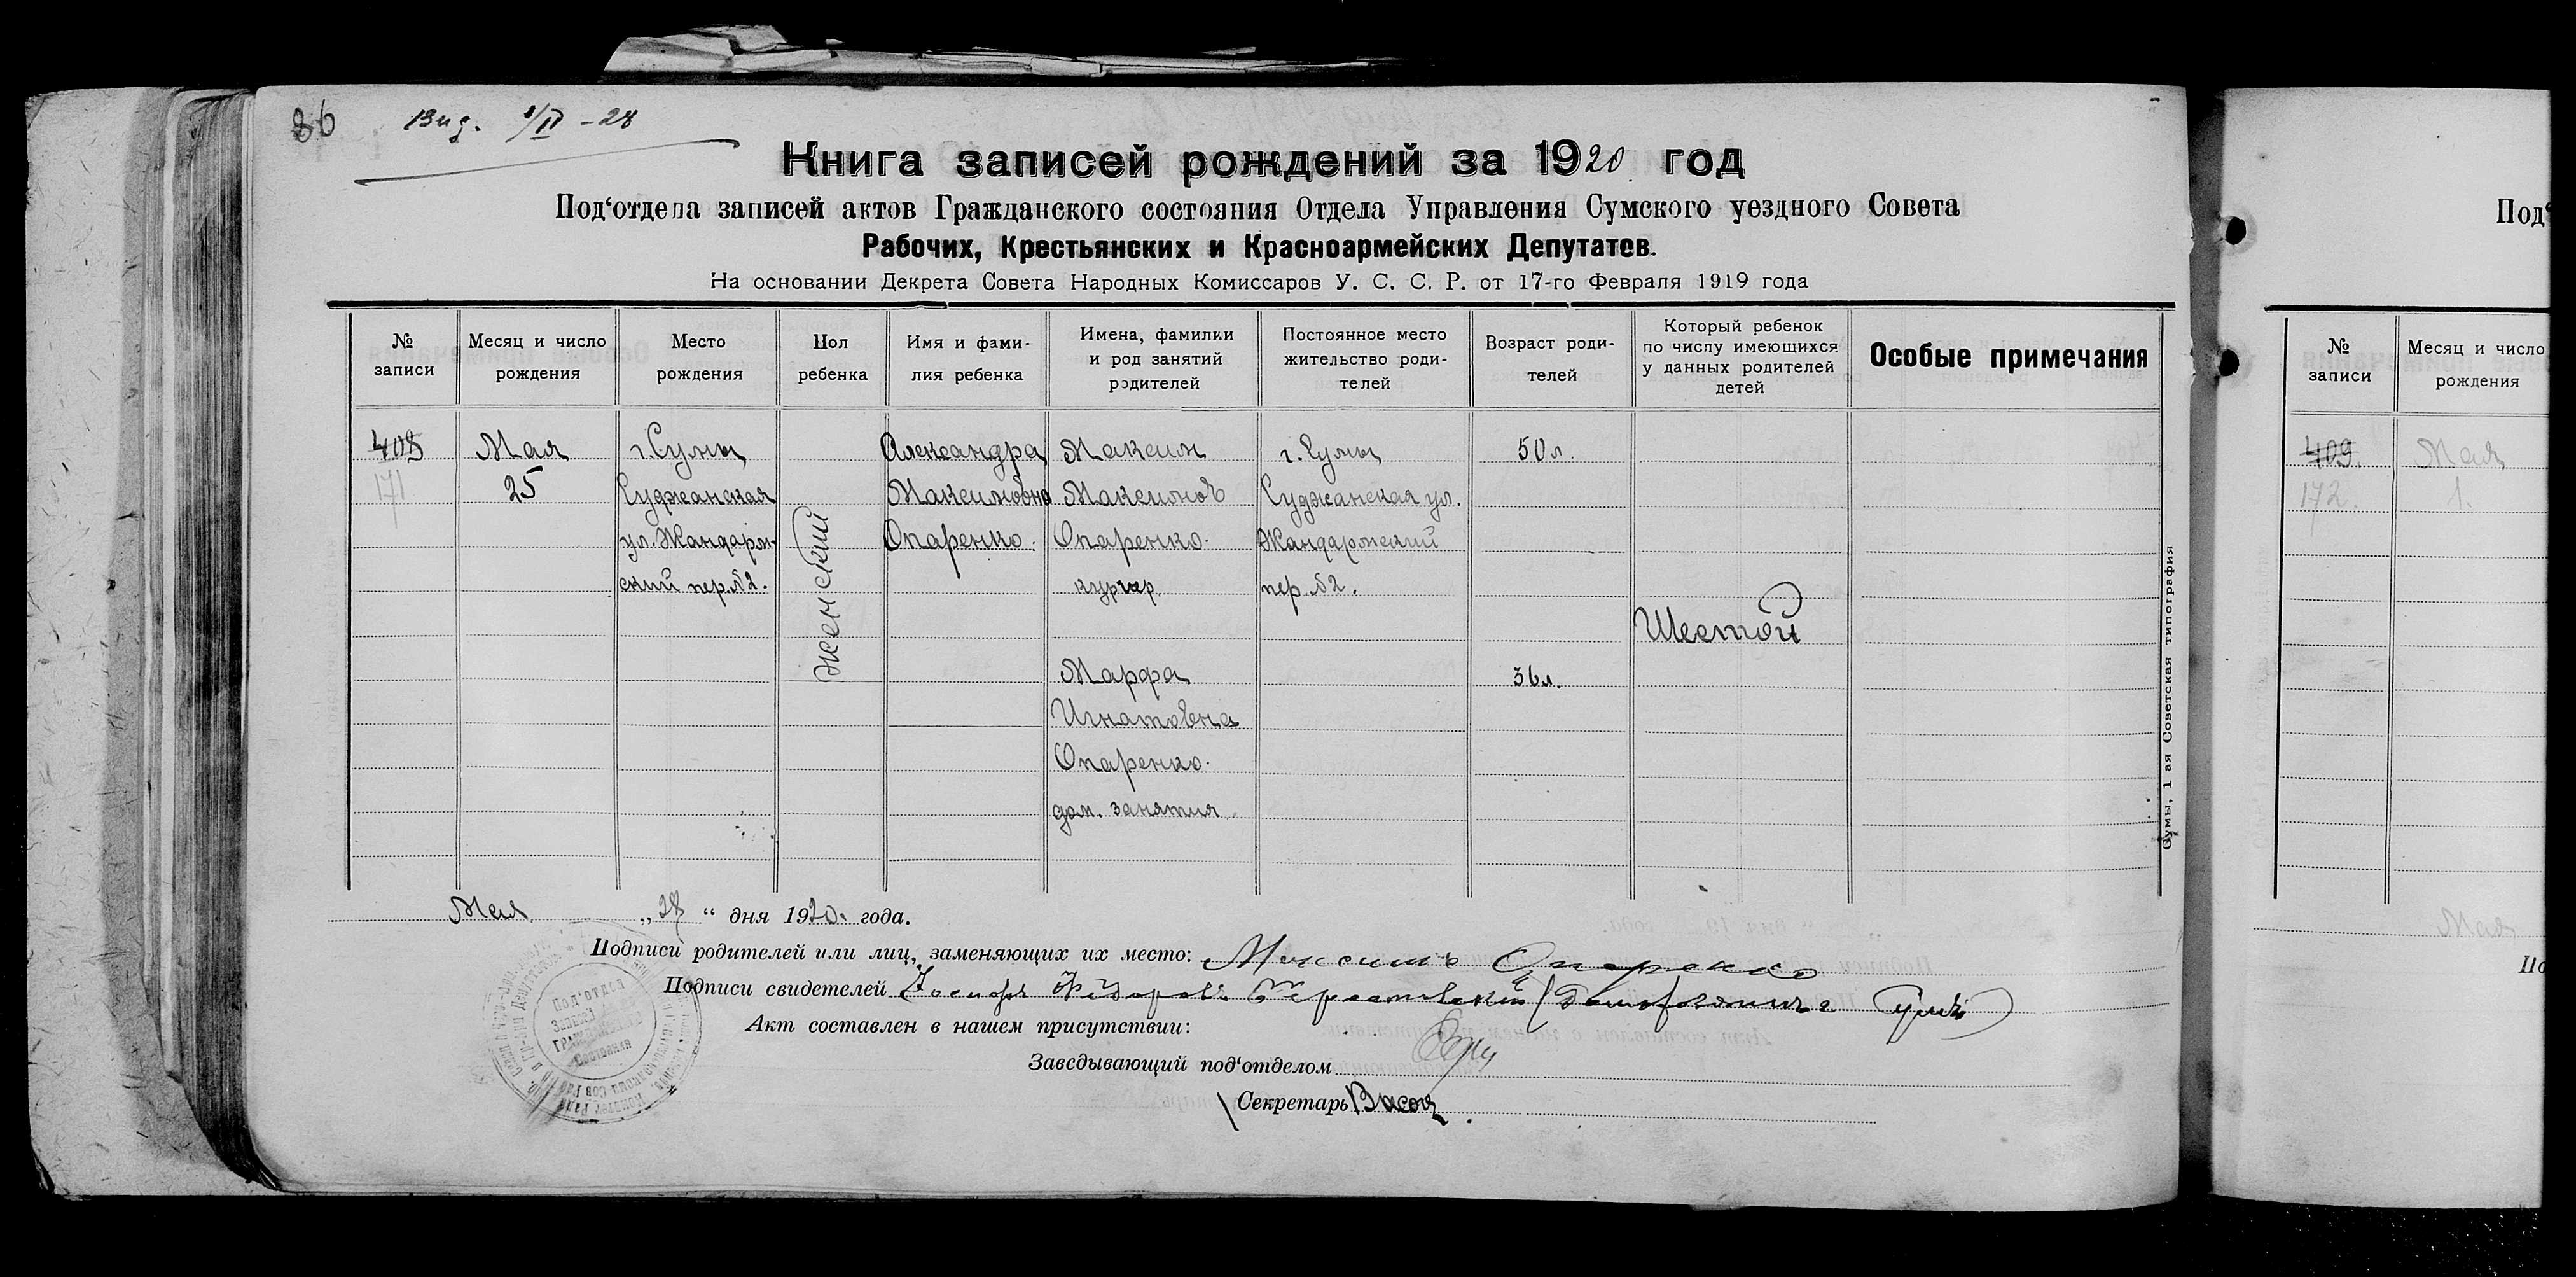 36
Вид. 1/II – 28
Книга записей рождений за 1920 год
Под‘отдела записей актов Гражданского состояния Отдела Управления Сумского уездного Совета
Рабочих, Крестьянских и Красноармейских Депутатов.
На основании Декрета Совета Народных Комиссаров У. С. С. Р. от 17-го Февраля 1919 года
№ записи
Месяц и число
рождения
Место
рождения
Пол
ребенка
Имя и фами-
лия ребенка
Имена, фамилии
и род занятий
родителей
Постоянное место
жительство роди-
телей
Возраст роди-
телей
Который ребенок
по числу имеющихся
у данных родителей
детей
Особые примечания
408
171
Мая
25
г. Сумы
Суджанская
ул. Жандарм-
ский пер. №2.
женский
Александра
Максимовна
Опаренко.
Максим
Максимов
Опаренко.
курьер.
Марфа
Игнатовна
Опаренко.
дом. занятия.
г. Сумы
Суджанская ул.
Жандармский
пер. №2.
50 л.
36 л.
Шестой
Сумы, 1 ая Советская типография
Мая „28“ дня 1920. года.
Подписи родителей или лиц, заменяющих их место: Максимъ Опаренко
Подписи свидетелей
Акт составлен в нашем присутствии:
Заведывающий под‘отделом
Секретарь
Под‘отдел
Записей
Гражданского
Состояния
Под‘
№
записи
Месяц и число
рождения
409.
172.
Мая
1.
Мая
По